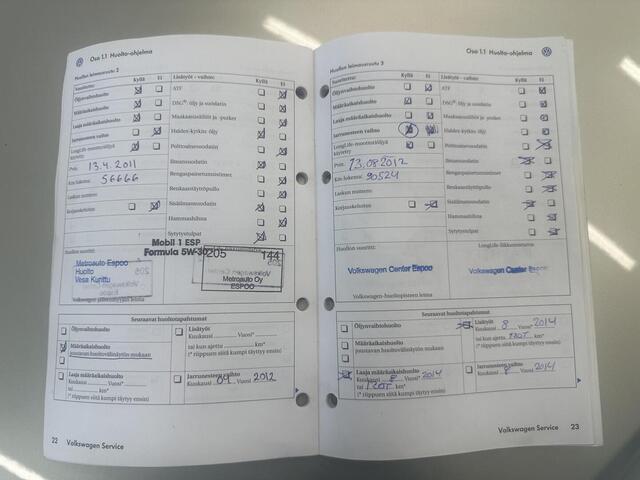 Osa 1.1 Huolto-ohjelma
Huollon leimausruutu 2
Suoritettu: Kyllä Ei
Öljynvaihtohuolto
Määräaikaishuolto
Laaja määräaikaishuolto
Jarrunesteen vaihto
LongLife-moottoriöljyä käytetty
Pvm: 13.4.2011
Km-lukema: 56666
Laskun numero:
Korjauskehotus
Lisätyöt - vaihto: Kyllä Ei
ATF
DSG®-öljy ja suodatin
Maakaasusäiliöt ja -putket
Haldex-kytkin öljy
Polttoainesuodatin
Ilmansuodatin
Rengaspaineentunnistimet
Renkaantäyttöpullo
Sisäilmansuodatin
Hammashihna
Sytytystulpat
Huollon suoritti:
Metroauto Espoo
Huolto
Vesa Kurittu
Mobil 1 ESP
Formula 5W-30
205 144
Metroauto Oy
ESPOO
Seuraavat huoltotapahtumat
Öljynvaihtohuolto
Määräaikaishuolto
joustavan huoltovälinäytön mukaan
Laaja määräaikaishuolto
Kuukausi Vuosi*
tai km*
(* riippuen siitä kumpi täyttyy ensin)
Lisätyöt
Kuukausi Vuosi*
tai kun ajettu km*
(* riippuen siitä kumpi täyttyy ensin)
Jarrunesteen vaihto
Kuukausi 04 Vuosi 2012
22 Volkswagen Service
Osa 1.1 Huolto-ohjelma
Huollon leimausruutu 3
Suoritettu: Kyllä Ei
Öljynvaihtohuolto
Määräaikaishuolto
Laaja määräaikaishuolto
Jarrunesteen vaihto
LongLife-moottoriöljyä käytetty
Pvm: 13.08.2012
Km-lukema: 90524
Laskun numero:
Korjauskehotus
Lisätyöt - vaihto: Kyllä Ei
ATF
DSG®-öljy ja suodatin
Maakaasusäiliöt ja -putket
Haldex-kytkin öljy
Polttoainesuodatin
Ilmansuodatin
Rengaspaineentunnistimet
Renkaantäyttöpullo
Sisäilmansuodatin
Hammashihna
Sytytystulpat
Huollon suoritti:
Volkswagen Center Espoo
Volkswagen-huoltopisteen leima
Volkswagen Center Espoo
Seuraavat huoltotapahtumat
Öljynvaihtohuolto
Määräaikaishuolto
joustavan huoltovälinäytön mukaan
Laaja määräaikaishuolto
Kuukausi 8 Vuosi* 2014
tai km*
(* riippuen siitä kumpi täyttyy ensin)
Lisätyöt
Kuukausi 8 Vuosi* 2014
tai kun ajettu km*
(* riippuen siitä kumpi täyttyy ensin)
Jarrunesteen vaihto
Kuukausi 8 Vuosi 2014
Volkswagen Service 23